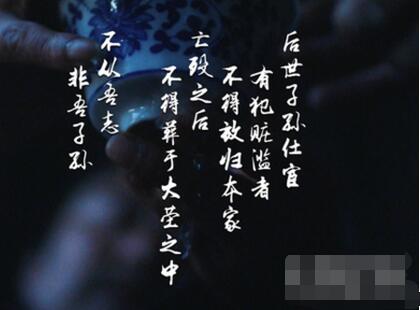 后世子孙仕官
有犯赃滥者
不得放归本家
亡殁之后
不得葬于大茔之中
不从吾志
非吾子孙